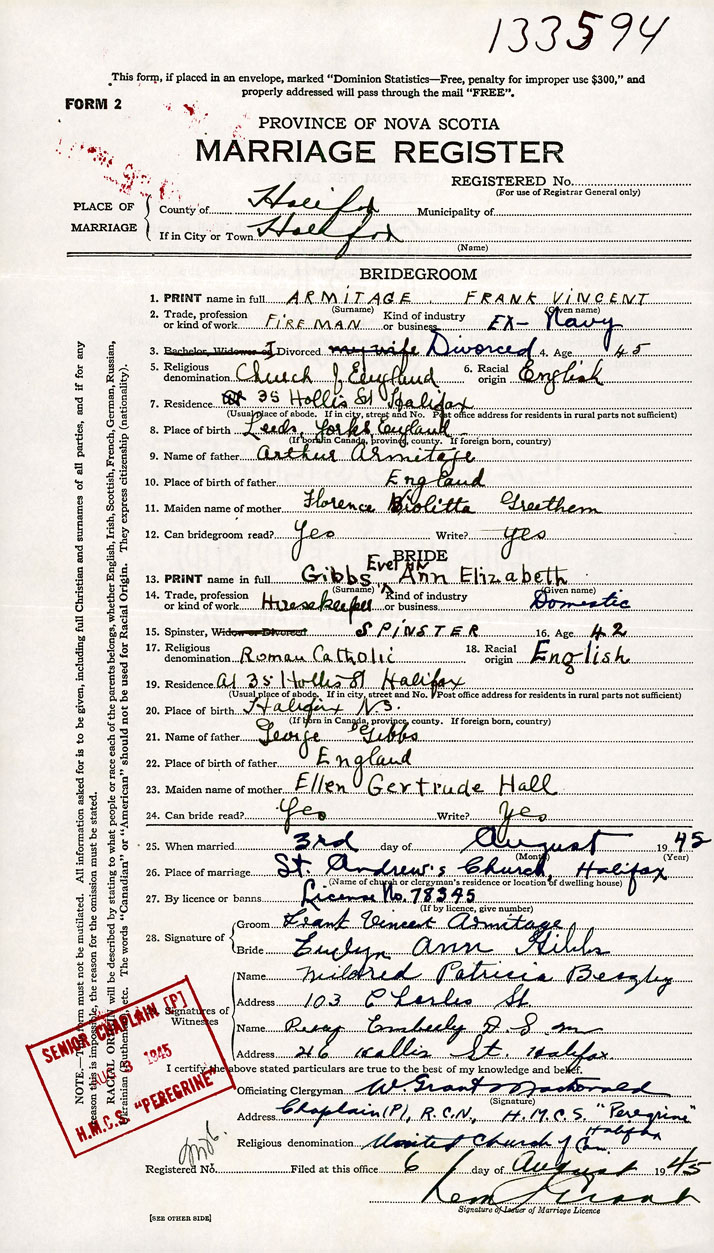 133594
This form, if placed in an envelope, marked "Dominion Statistics—Free, penalty for improper use $300," and
properly addressed will pass through the mail "FREE".
FORM 2
PROVINCE OF NOVA SCOTIA
MARRIAGE REGISTER
REGISTERED No.
(For use of Registrar General only)
PLACE OF MARRIAGE
County of Halifax Municipality of
If in City or Town Halifax
(Name)
BRIDEGROOM
1. PRINT name in full ARMITAGE FRANK VINCENT
(Surname) (Given name)
2. Trade, profession or kind of work FIREMAN Kind of industry or business EX- Navy
3. Bachelor, Widower or Divorced my wife Divorced 4. Age 45
5. Religious denomination Church of England 6. Racial origin English
7. Residence at 35 Hollis St Halifax
(Usual place of abode. If in city, street and No. Post office address for residents in rural parts not sufficient)
8. Place of birth Leeds, Yorks England
(If born in Canada, province, county. If foreign born, country)
9. Name of father Arthur Armitage
10. Place of birth of father England
11. Maiden name of mother Florence Violitta Greethem
12. Can bridegroom read? Yes Write? yes
BRIDE
13. PRINT name in full Gibbs, Evelyn Ann Elizabeth
(Surname) (Given name)
14. Trade, profession or kind of work Housekeeper Kind of industry or business Domestic
15. Spinster, Widow or Divorced SPINSTER 16. Age 42
17. Religious denomination Roman Catholic 18. Racial origin English
19. Residence At 35 Hollis St Halifax
(Usual place of abode. If in city, street and No. Post office address for residents in rural parts not sufficient)
20. Place of birth Halifax N.S.
(If born in Canada, province, county. If foreign born, country)
21. Name of father George Gibbs
22. Place of birth of father England
23. Maiden name of mother Ellen Gertrude Hall
24. Can bride read? Yes Write? Yes
25. When married 3rd day of August 1945
(Month) (Year)
26. Place of marriage St. Andrew's Church, Halifax
(Name of church or clergyman's residence or location of dwelling house)
27. By licence or banns License No. 78345
(If by licence, give number)
28. Signature of
Groom Frank Vincent Armitage
Bride Evelyn Ann Gibbs
Signatures of Witnesses
Name Mildred Patricia Beazley
Address 103 Charles St.
Name Percy Emberly D S m
Address 26 Hollis St. Halifax
I certify the above stated particulars are true to the best of my knowledge and belief.
Officiating Clergyman W Grant Macdonald
(Signature)
Address Chaplain (P), R.C.N., H.M.C.S. "Peregrine"
Halifax
Religious denomination United Church of Can.
Registered No. Filed at this office 6 day of August 1945
Signature of Issuer of Marriage Licence
[SEE OTHER SIDE]
NOTE.—This form must not be mutilated. All information asked for is to be given, including full Christian and surnames of all parties, and if for any
reason this is impossible, the reason for the omission must be stated.
RACIAL ORIGIN will be described by stating to what people or race each of the parents belongs, whether English, Irish, Scottish, French, German, Russian,
Ukrainian (Ruthenian), etc. The words "Canadian" or "American" should not be used for Racial Origin. They express citizenship (nationality).
SENIOR CHAPLAIN [P]
3 1945
H.M.C.S. "PEREGRINE"